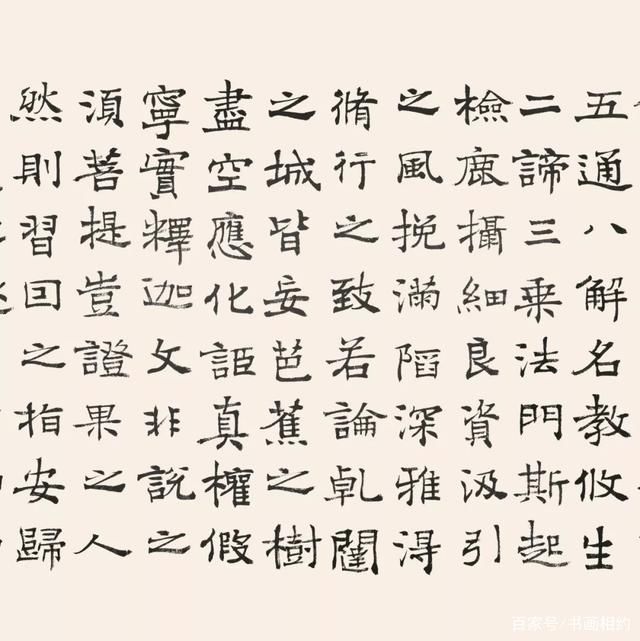 五通八解名教攸生
二諦三乗法門斯起
檢鹿攝細良資汲引
之風挽滿陷深雅得
脩行之致若論乹闥
之城皆妄芭蕉之樹
盡空應化詎真權假
寧實釋迦文非說之
須菩提豈證果之人
然則習回之指安歸
百家号/书画相约